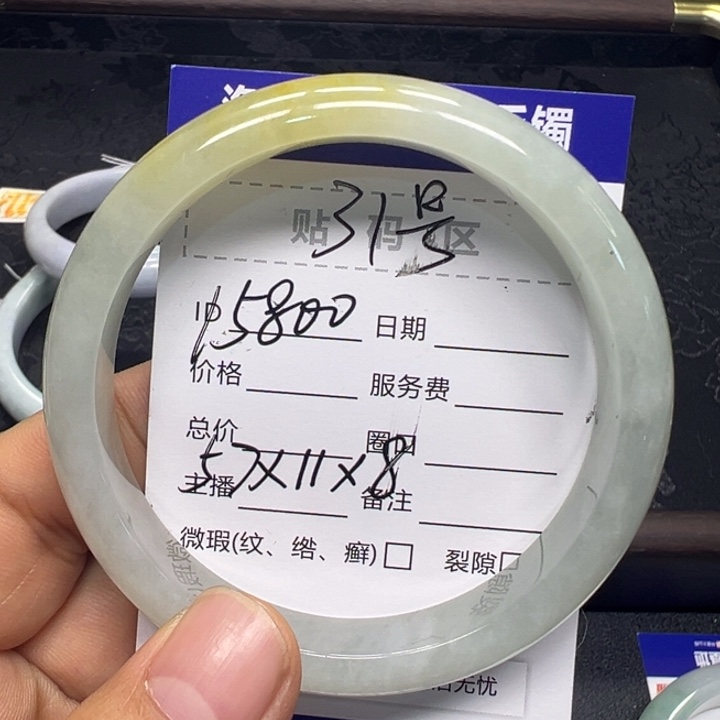 镯
贴码区
31号
ID 15800 日期
价格 服务费
总价 圈口
57×11×8
主播 备注
微瑕(纹、绺、癣)□ 裂隙□
无忧